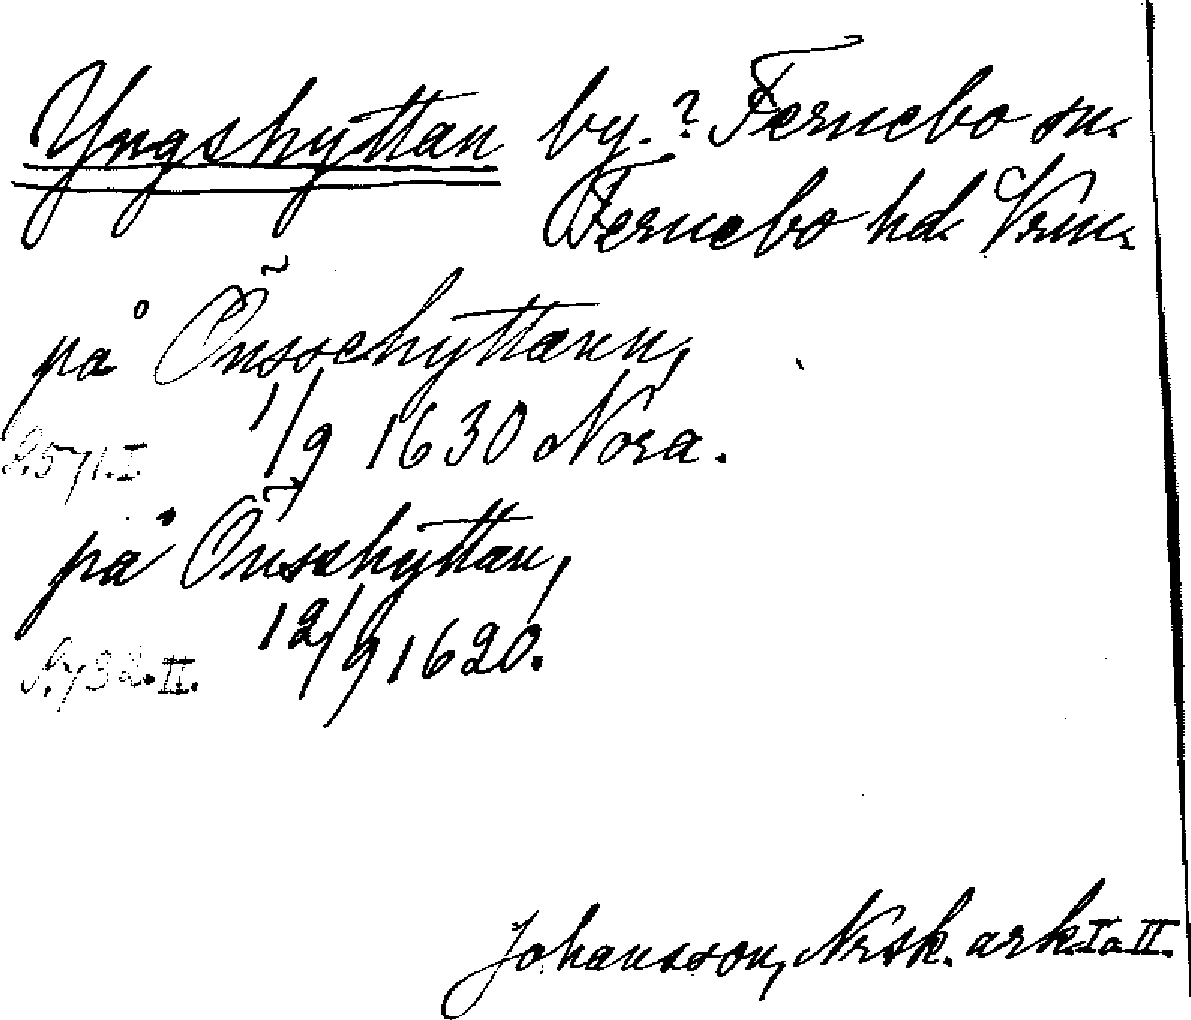 Yngshyttan by.? Fernebo sn.
Fernebo hd. Vrm.
på Õnsschyttann,
1/9 1630 Nora.
S. 571. I
på Õnsshyttan,
12/9 1620.
S. 732. II.
Johansson, Nrsk. ark I o II.